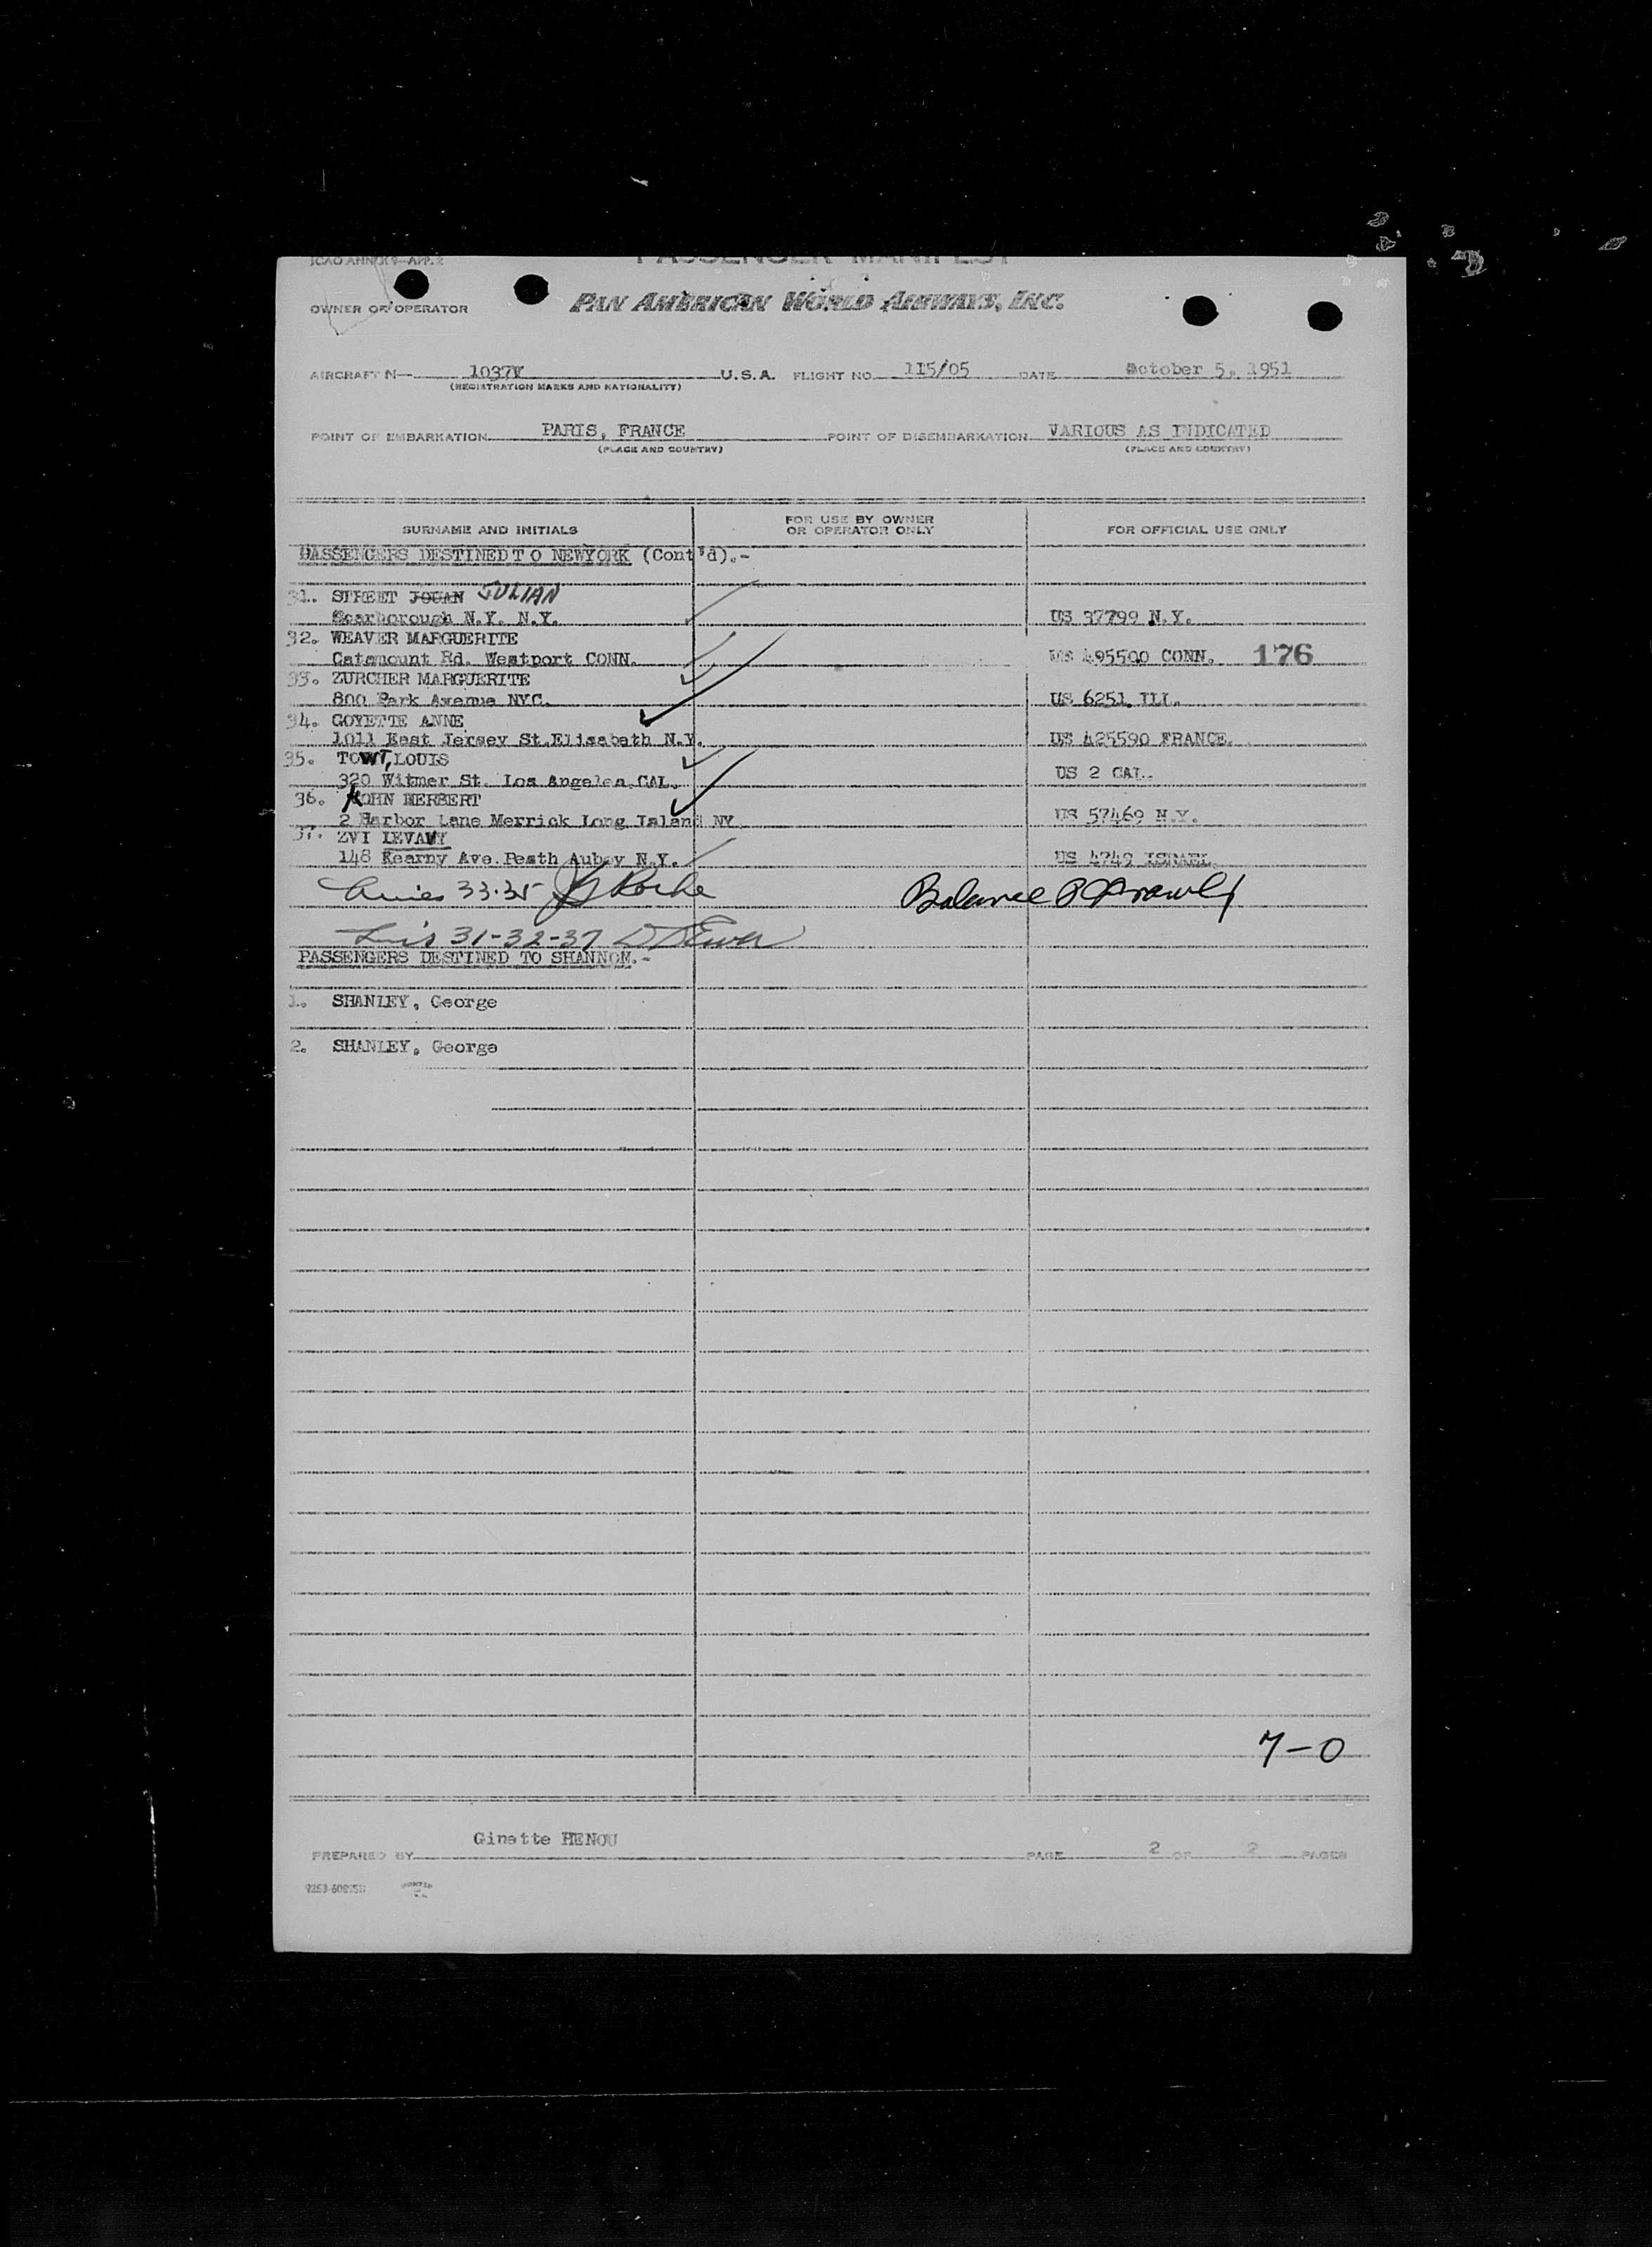 ICAO ANNEX 9—APP. 2
PASSENGER MANIFEST
OWNER OR OPERATOR PAN AMERICAN WORLD AIRWAYS, INC.
AIRCRAFT N— 1037V U.S.A. FLIGHT NO. 115/05 DATE October 5, 1951
(REGISTRATION MARKS AND NATIONALITY)
POINT OF EMBARKATION PARIS, FRANCE POINT OF DISEMBARKATION VARIOUS AS INDICATED
(PLACE AND COUNTRY) (PLACE AND COUNTRY)
SURNAME AND INITIALS FOR USE BY OWNER OR OPERATOR ONLY FOR OFFICIAL USE ONLY
PASSENGERS DESTINED T O NEWYORK (Cont'd).-
31. STREET JOUAN JULIAN
Scarborough N.Y. N.Y. US 37799 N.Y.
32. WEAVER MARGUERITE
Catamount Rd. Westport CONN. US 495500 CONN. 176
33. ZURCHER MARGUERITE
800 Park Avenue NYC. US 6251 ILL.
34. GOYETTE ANNE
1011 East Jersey St.Elisabeth N.Y. US 425590 FRANCE.
35. TOWT, LOUIS
320 Witmer St. Los Angeles CAL. US 2 CAL.
36. KOHN HERBERT
2 Harbor Lane Merrick Long Island NY US 57469 N.Y.
37. ZVI LEVAVY
148 Kearny Ave.Peath Auboy N.Y. US 4749 ISRAEL
33-35 Roche Balance
31-32-37
PASSENGERS DESTINED TO SHANNON.-
1. SHANLEY, George
2. SHANLEY, George
7-0
Ginette HENOU
PREPARED BY PAGE 2 OF 2 PAGES